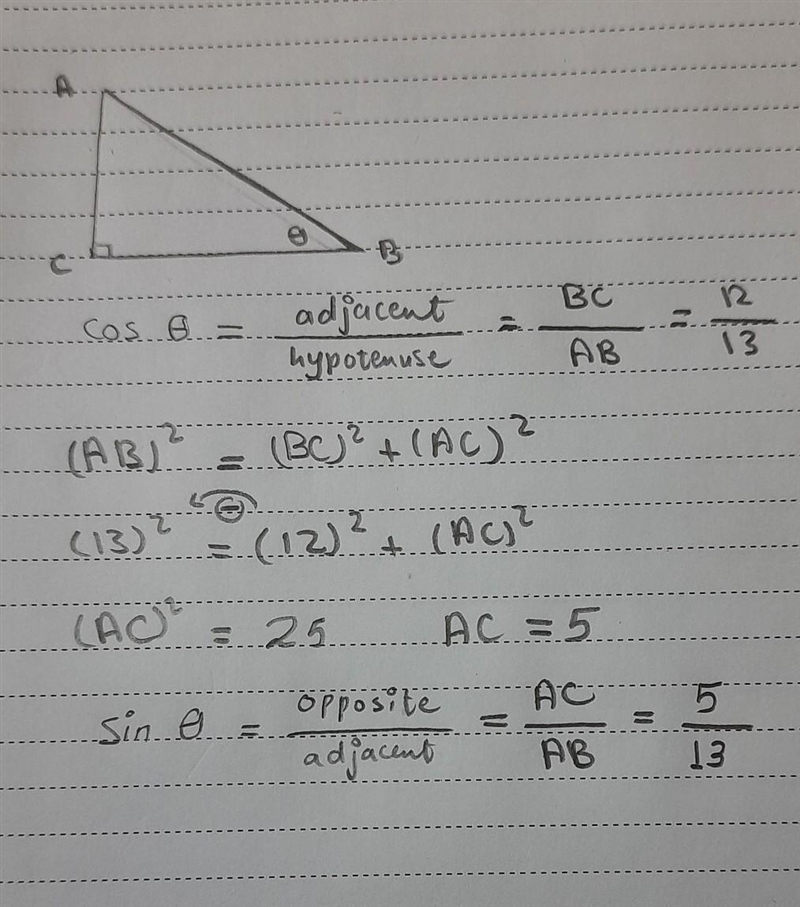 A
C
θ
B
cos θ = adjacent/hypotenuse = BC/AB = 12/13
(AB)² = (BC)² + (AC)²
⊖
(13)² = (12)² + (AC)²
(AC)² = 25 AC = 5
Sin θ = opposite/adjacent = AC/AB = 5/13